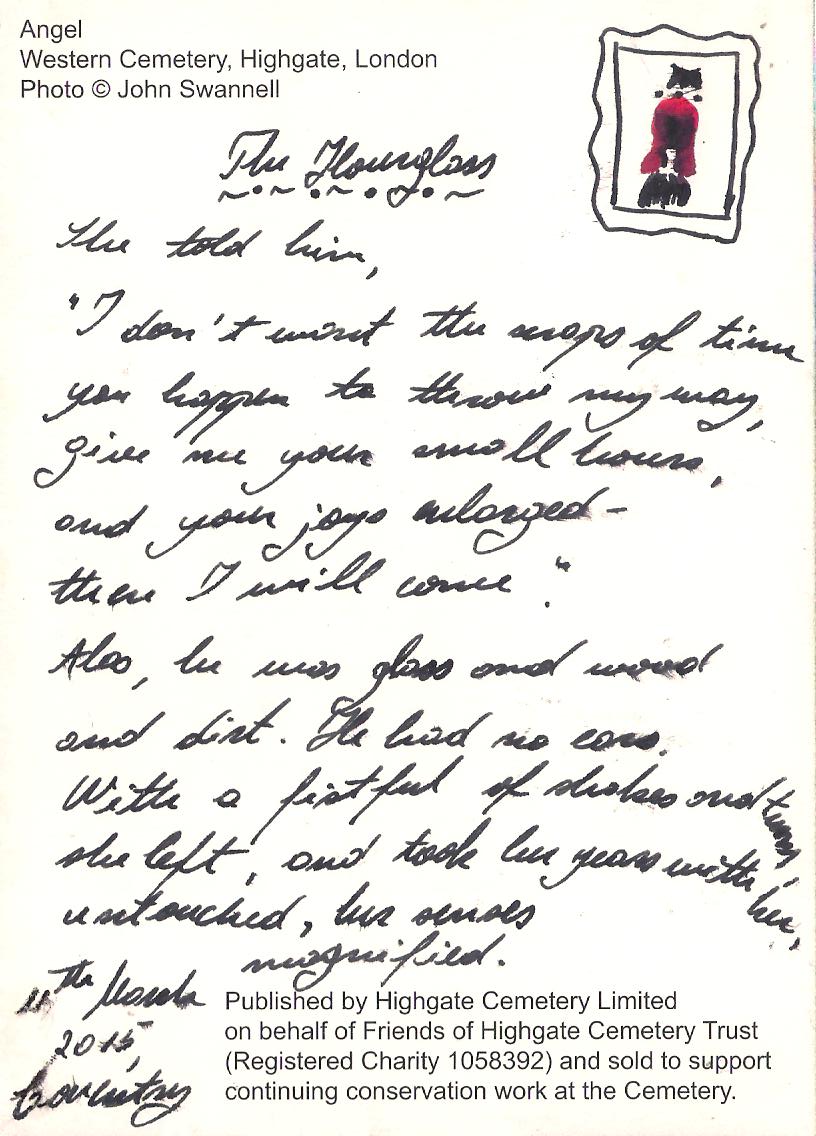 Angel
Western Cemetery, Highgate, London
Photo © John Swannell
The Hourglass
She told him,
"I don't want the scraps of time
you happen to throw my way,
give me your small hours,
and your joys enlarged –
then I will come."
Alas, he was glass and wood
and dirt. He had no ears.
With a fistful of shakes and turns,
she left, and took her years with her,
untouched, her senses
magnified.
11th March
2015,
Coventry
Published by Highgate Cemetery Limited
on behalf of Friends of Highgate Cemetery Trust
(Registered Charity 1058392) and sold to support
continuing conservation work at the Cemetery.